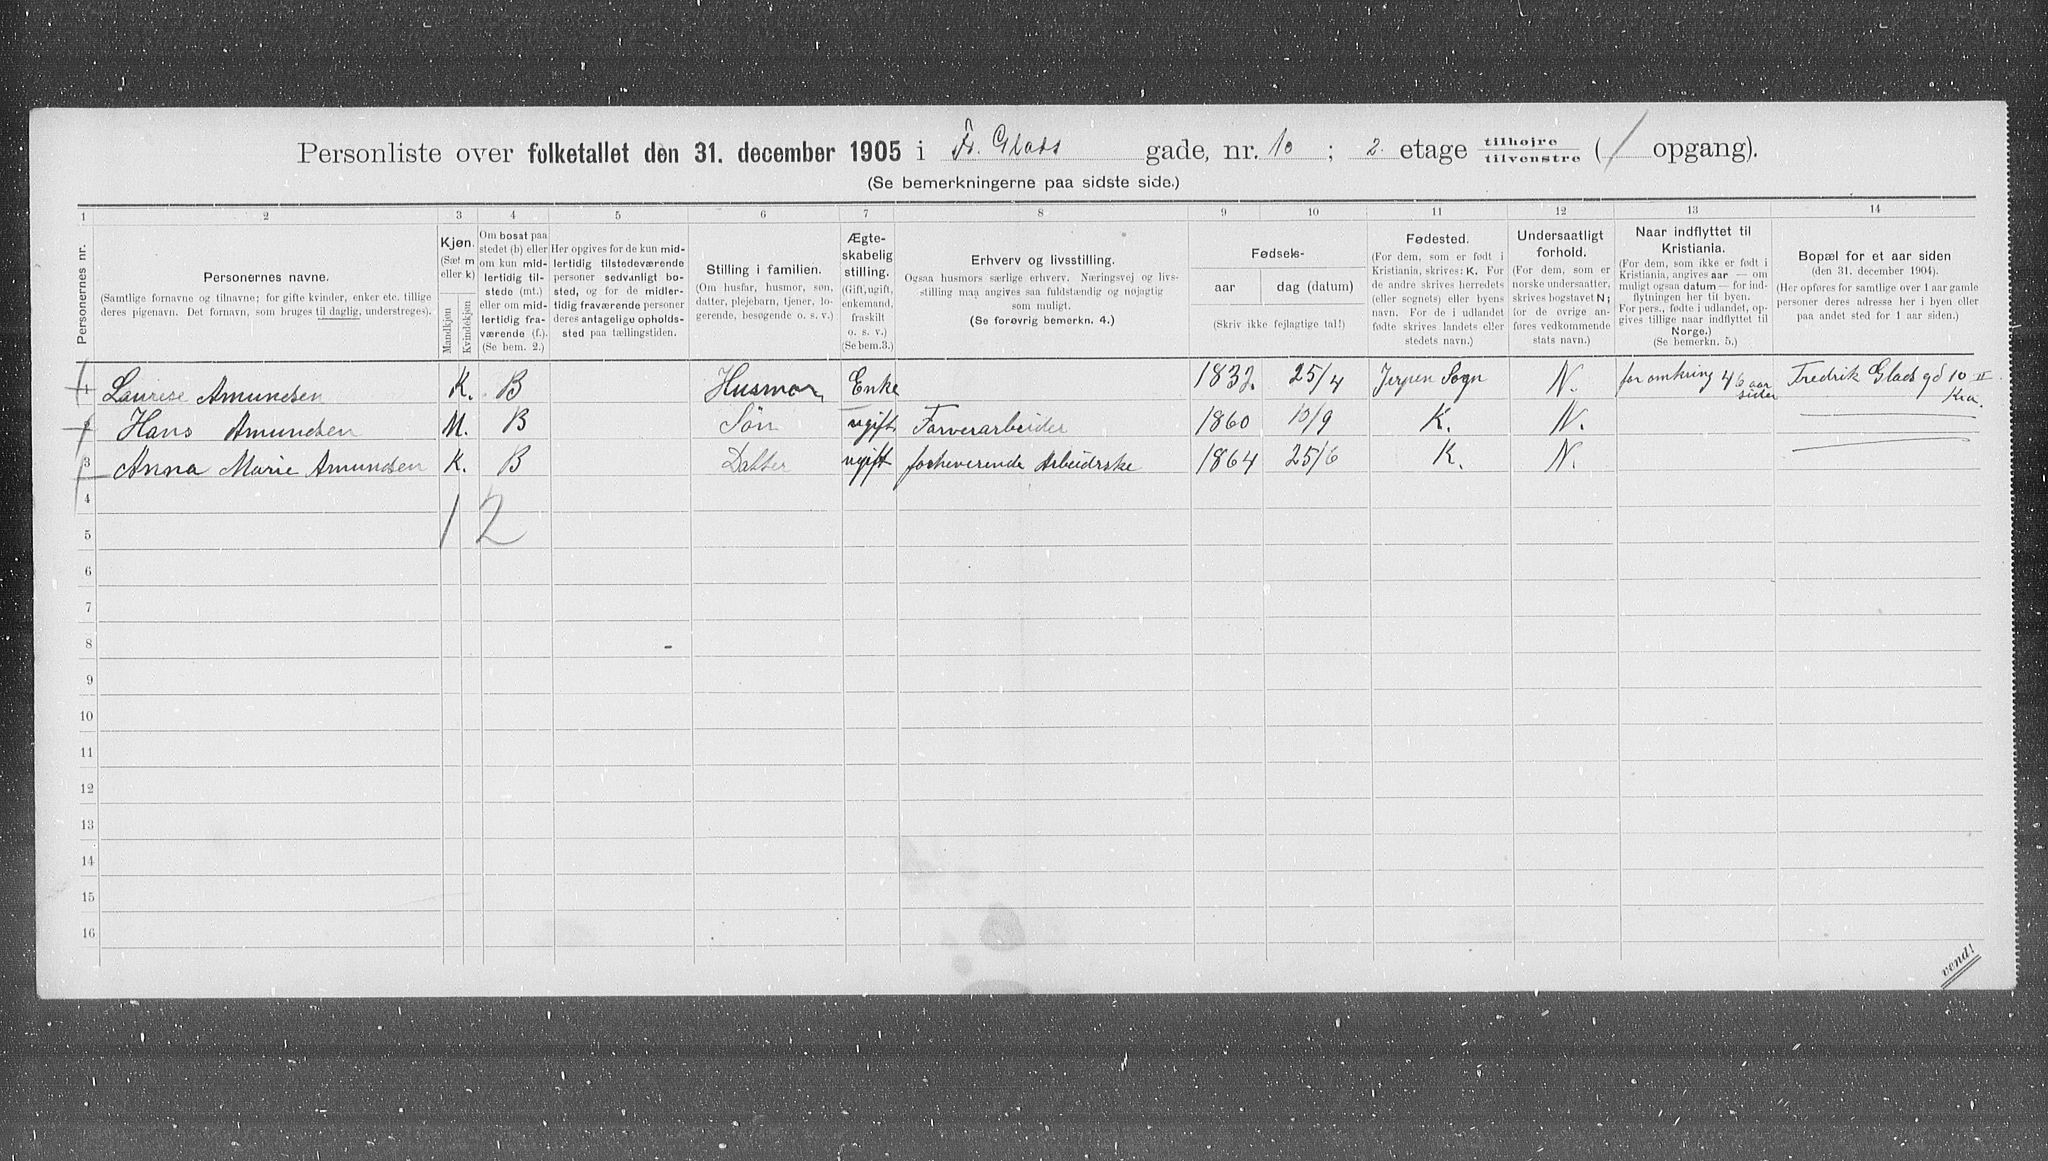 Personliste over folketallet den 31. december 1905 i Fr. Glads gade, nr. 10 ; 2. etage tilhøjre tilvenstre ( / opgang).
(Se bemerkningerne paa sidste side.)
1 2 3 4 5 6 7 8 9 10 11 12 13 14
Personernes nr.
Personernes navne.
(Samtlige fornavne og tilnavne; for gifte kvinder, enker etc. tillige
deres pigenavn. Det fornavn, som bruges til daglig, understreges).
Kjøn.
(Sæt m
eller k).
Mandkjøn
Kvindekjøn
Om bosat paa
stedet (b) eller
om kun mid-
lertidig til-
stede (mt.)
eller om mid-
lertidig fra-
værende (f.).
(Se bem. 2.)
Her opgives for de kun mid-
lertidig tilstedeværende
personer sedvanligt bo-
sted, og for de midler-
tidig fraværende personer
deres antagelige opholds-
sted paa tællingstiden.
Stilling i familien.
(Om husfar, husmor, søn,
datter, plejebarn, tjener, lo-
gerende, besøgende o. s. v.)
Ægte-
skabelig
stilling.
(Gift, ugift,
enkemand,
fraskilt
o. s. v.)
(Se bem.3.)
Erhverv og livsstilling.
Ogsaa husmors særlige erhverv. Næringsvej og livs-
stilling maa angives saa fuldstændig og nøjagtig
som muligt.
(Se forøvrig bemerkn. 4.)
Fødsels-
aar
dag (datum)
(Skriv ikke fejlagtige tal!)
Fødested.
(For dem, som er født i
Kristiania, skrives: K. For
de andre skrives herredets
(eller sognets) eller byens
navn. For de i udlandet
fødte skrives landets eller
stedets navn.)
Undersaatligt
forhold.
(For dem, som er
norske undersaatter,
skrives bogstavet N;
for de øvrige an-
føres vedkommende
stats navn.)
Naar indflyttet til
Kristiania.
(For dem, som ikke er født i
Kristiania, angives aar — om
muligt ogsaa datum — for ind-
flytningen her til byen.
For pers., fødte i udlandet, op-
gives tillige naar indflyttet til
Norge.)
(Se bemerkn. 5.)
Bopæl for et aar siden
(den 31. december 1904).
(Her opføres for samtlige over 1 aar gamle
personer deres adresse her i byen eller
paa andet sted for 1 aar siden.)
1 Laurise Amundsen K. B Husmor Enke 1832. 25/4 Jerpen Sogn N. for omkring 46 aar siden Fredrik Glads gd 10 II Kra.
2 Hans Amundsen M. B Søn ugift Farverarbeider 1860 10/9 K. N.
3 Anna Marie Amundsen K. B Datter ugift forheverende Arbeidrske 1864 25/6 K. N.
4
1 2
5
6
7
8
9
10
11
12
13
14
15
16
vend!